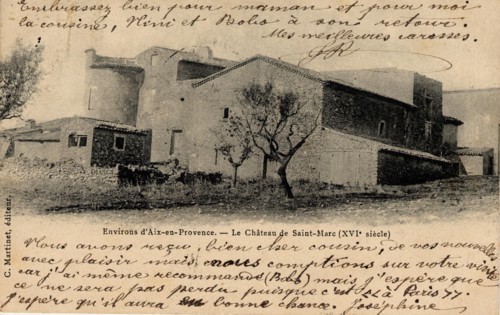 Embrassez bien pour maman et pour moi
la cousine, Nini et Bolio à son retour.
Mes meilleures caresses.
C. Martinet, éditeur.
Environs d'Aix-en-Provence. — Le Château de Saint-Marc (XVIᵉ siècle)
Vous avons reçu, bien cher cousin, de vos nouvelles
avec plaisir mais nous comptions sur votre visite
car j'ai même recommandé (Bolo) mais j'espère que
ce ne sera pas perdu puisque c'est à Paris
j'espère qu'il aura bonne chance. Joséphine